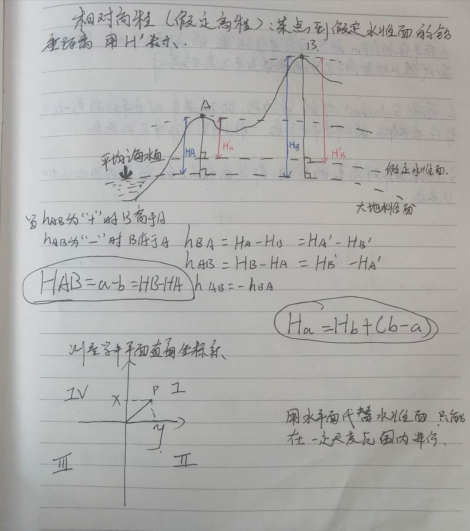 相对高程（假定高程）：某点到假定水准面的铅
垂距离 用H'表示、
B
A
HA
H'A
HB
H'B
平均海水面
假定水准面
大地水准面
当hAB为“+”时B高于A
hAB为“-”时B低于A
hBA=HA-HB=HA'-HB'
hAB=HB-HA=HB'-HA'
HAB=a-b=HB-HA
hAB=-hBA
Ha=Hb+(b-a)
测量学中平面直角坐标系、
IV
I
x
P
y
III
II
用水平面代替水准面,只能
在一定尺度范围内进行、